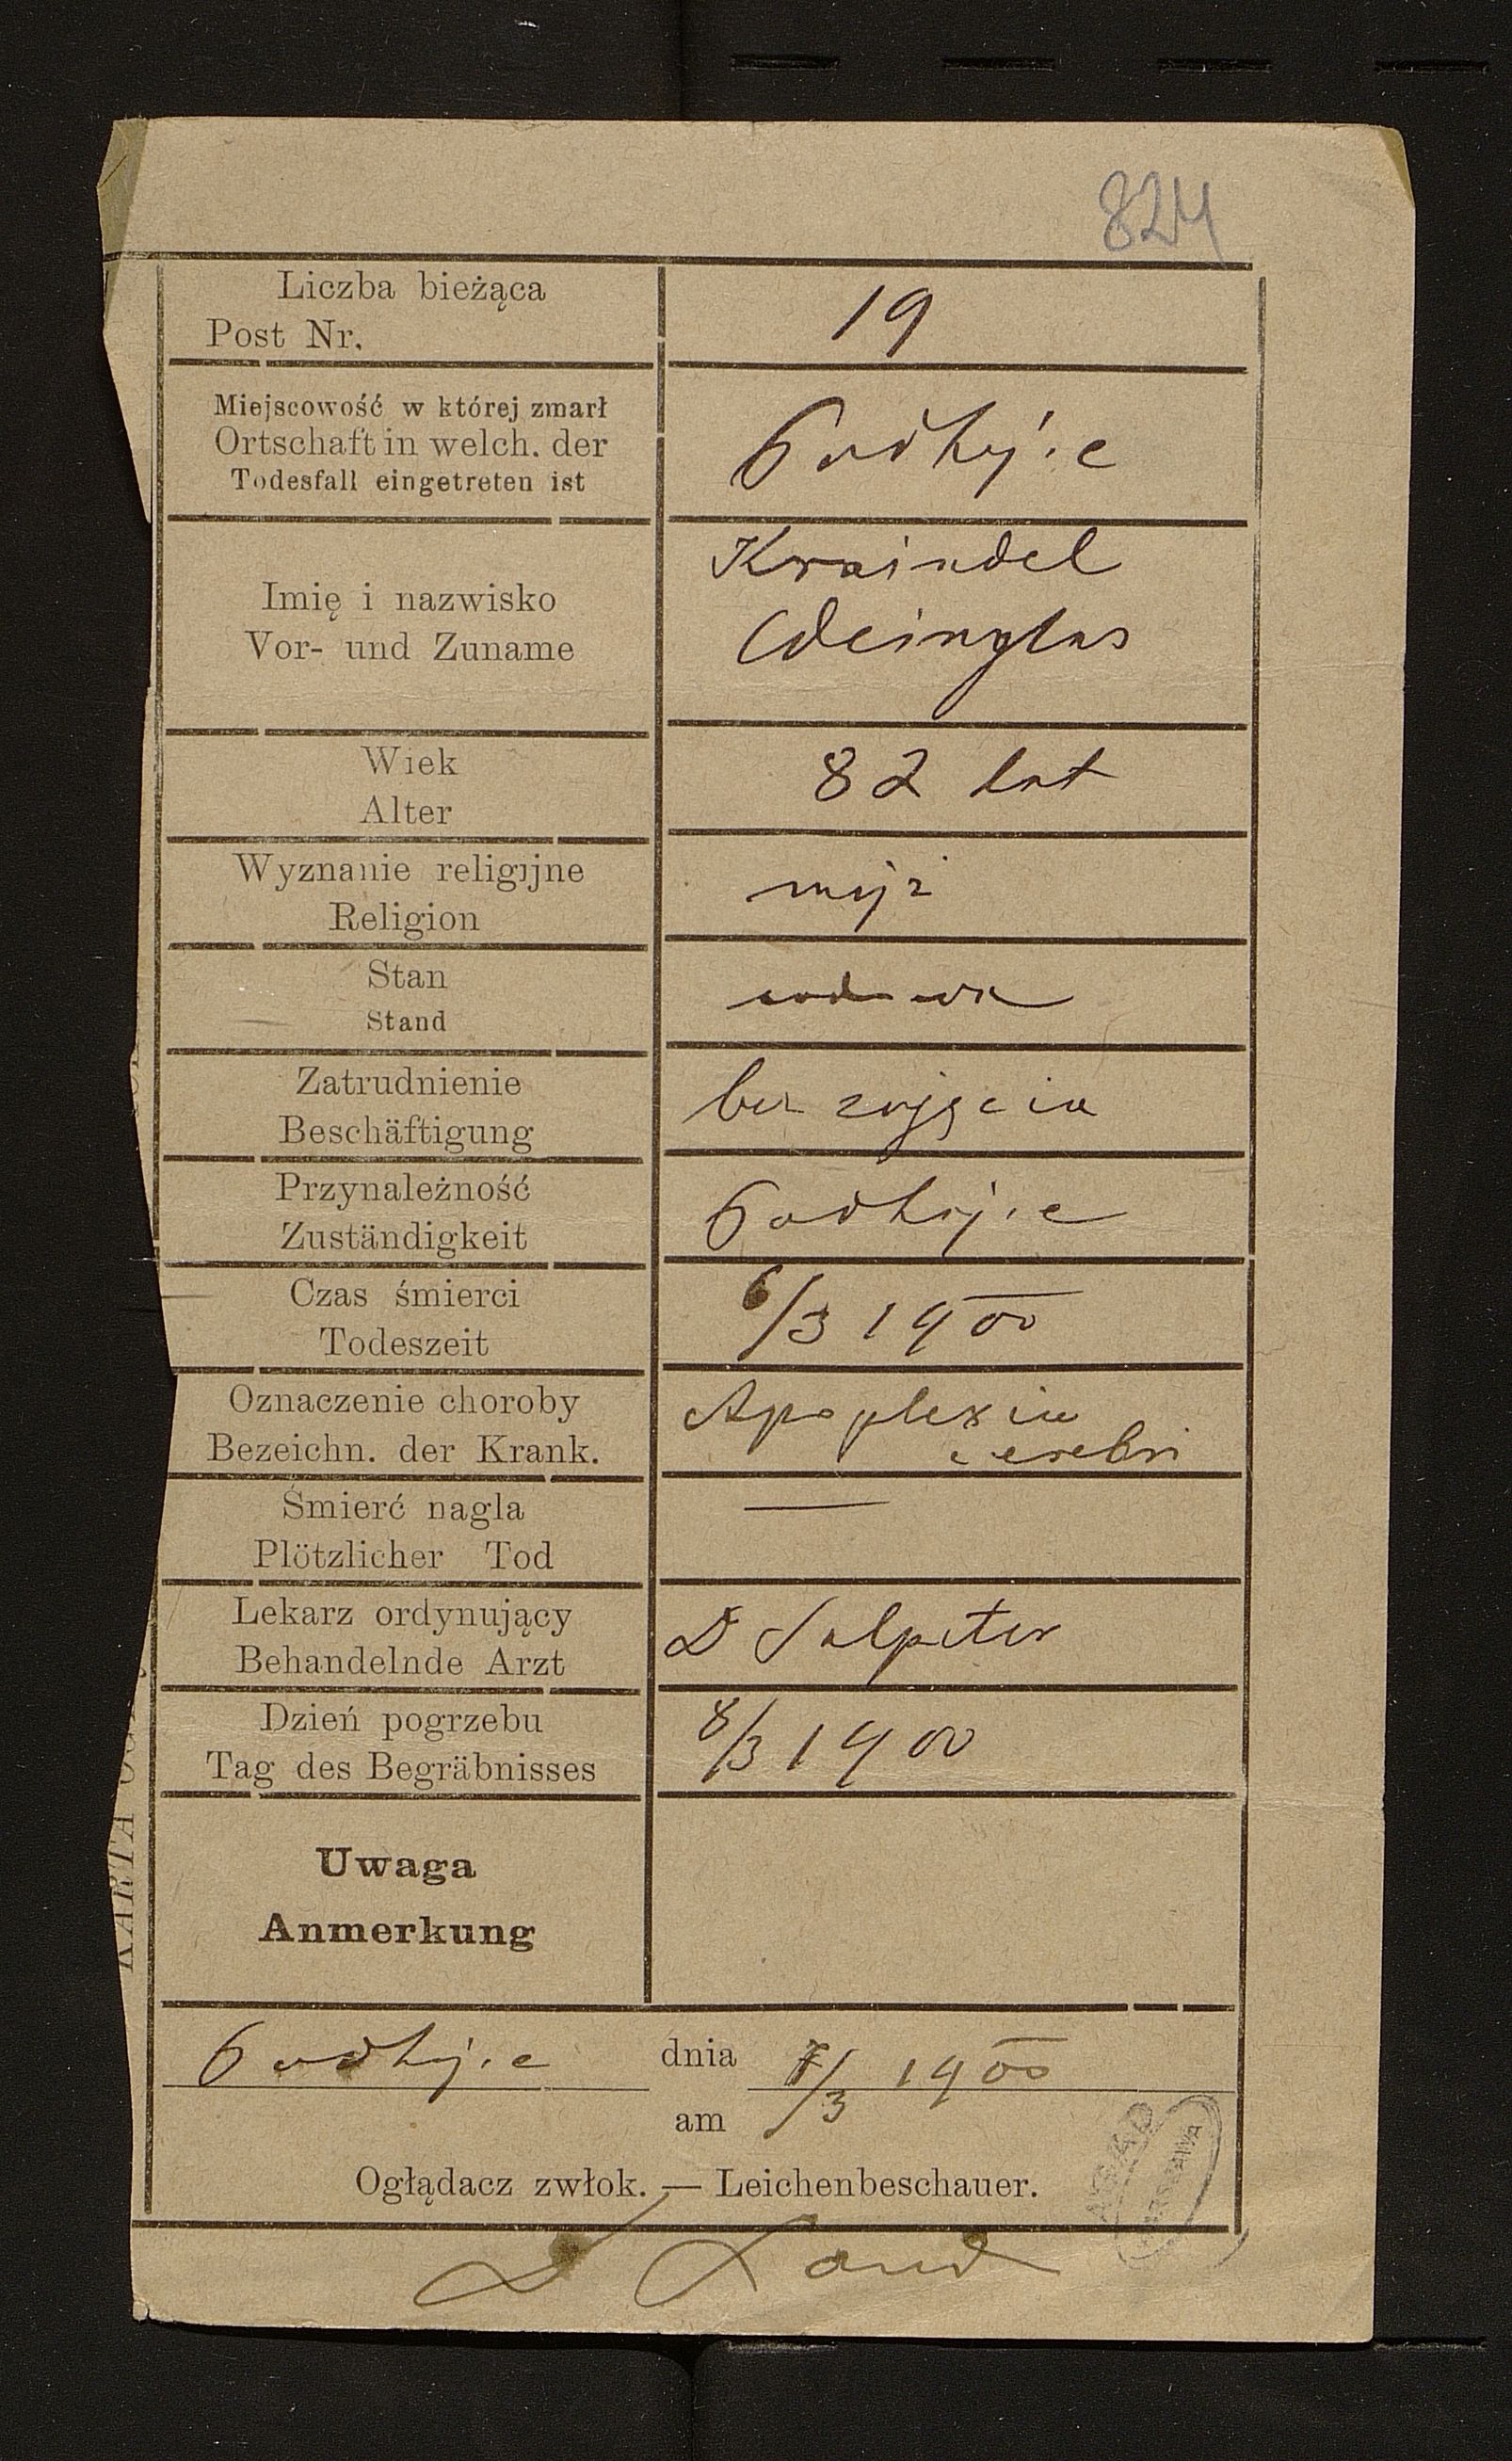 824
Liczba bieżąca
Post Nr.
19
Miejscowość w której zmarł
Ortschaft in welch. der
Todesfall eingetreten ist
Podhajce
Imię i nazwisko
Vor- und Zuname
Kraindel
Weinglas
Wiek
Alter
82 lat
Wyznanie religijne
Religion
mojż
Stan
Stand
wdowa
Zatrudnienie
Beschäftigung
bez zajęcia
Przynależność
Zuständigkeit
Podhajce
Czas śmierci
Todeszeit
6/3 1900
Oznaczenie choroby
Bezeichn. der Krank.
Apoplexia
cerebri
Śmierć nagla
Plötzlicher Tod
—
Lekarz ordynujący
Behandelnde Arzt
Dr Salpeter
Dzień pogrzebu
Tag des Begräbnisses
8/3 1900
Uwaga
Anmerkung
Podhajce dnia 7/3 1900
am
Oglądacz zwłok. — Leichenbeschauer.
KARTA
WARSZAWA